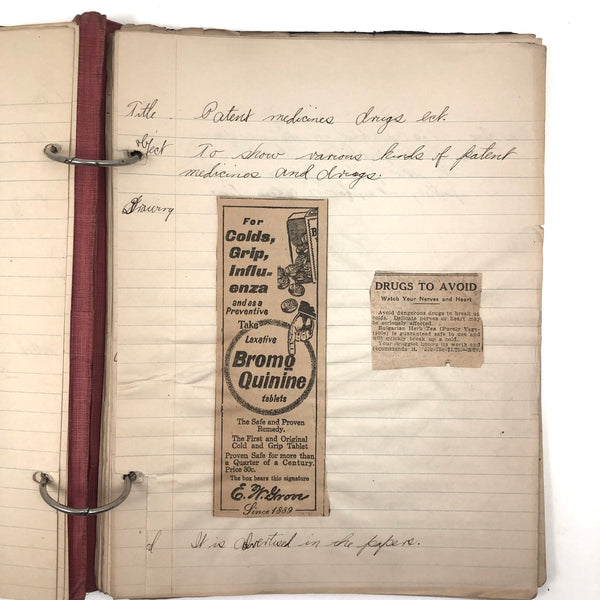 Title Patent medicines drugs ect.
object To show various kinds of patent
medicines and drugs.
Drawing
For
Colds,
Grip,
Influ-
enza
and as a
Preventive
Take
Laxative
Bromo
Quinine
tablets
The Safe and Proven
Remedy.
The First and Original
Cold and Grip Tablet
Proven Safe for more than
a Quarter of a Century.
Price 30c.
The box bears this signature
E. W. Grove
Since 1889
DRUGS TO AVOID
Watch Your Nerves and Heart
Avoid dangerous drugs to break up
colds. Delicate nerves or heart may
be seriously affected.
Bulgarian Herb Tea (Purely Vege-
table) is guaranteed safe to use and
will quickly break up a cold.
Your druggist knows its worth and
recommends it.
It is advertised in the papers.